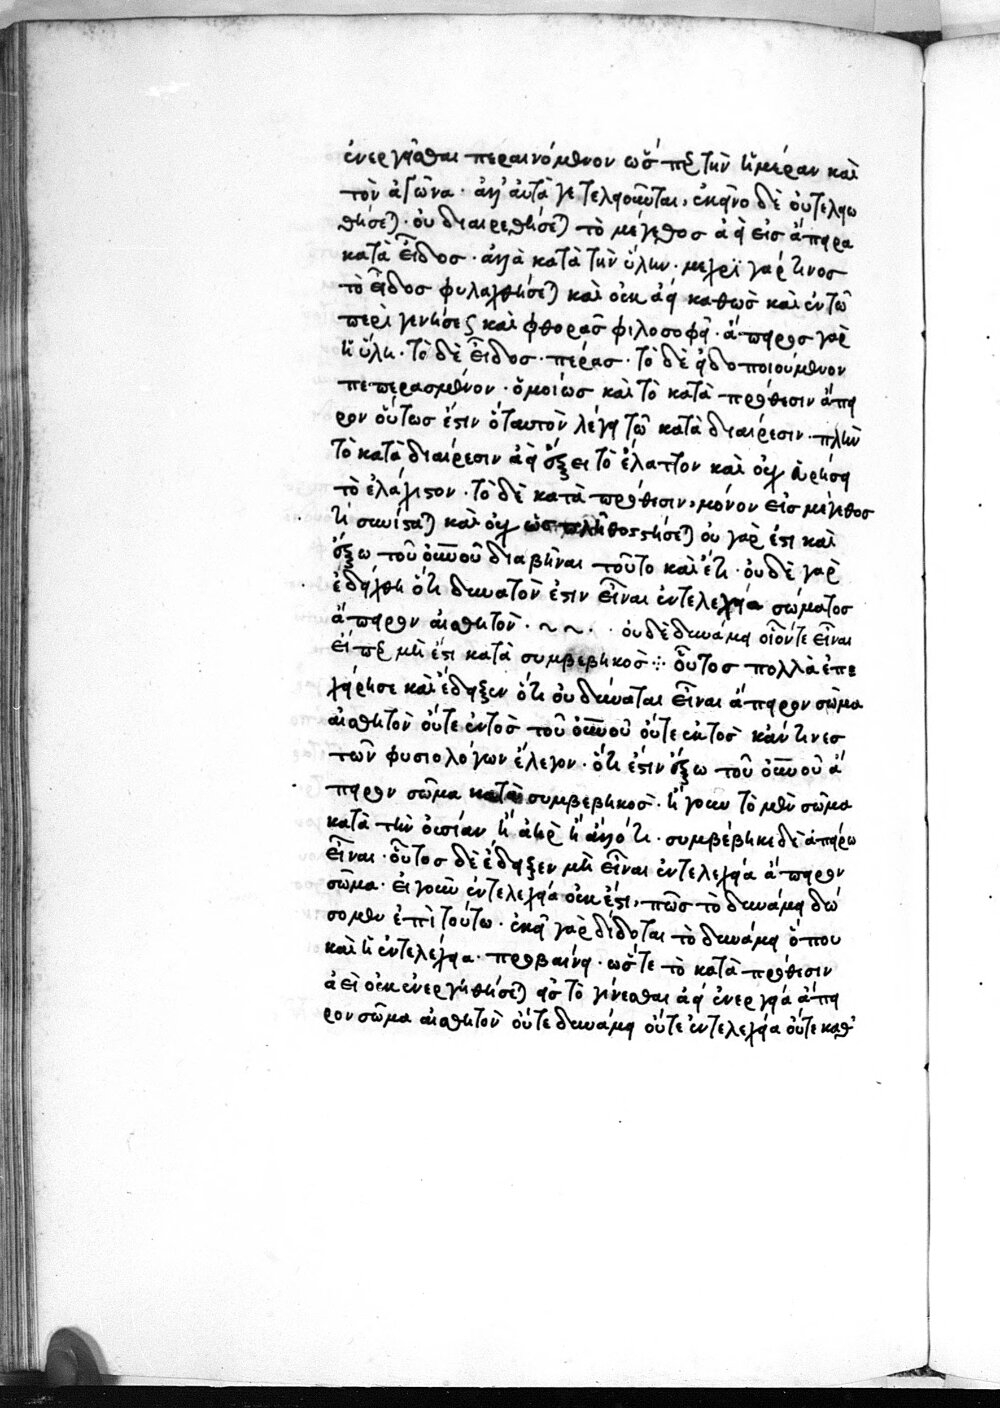 ἐνεργεῖσθαι περαινόμενον ὥσπερ τὴν ἡμέραν καὶ
τὸν ἀγῶνα· ἀλλ' αὐτά γε τελειοῦνται, ἐκεῖνο δὲ οὐ τελειω
θήσεται οὐ διαιρεθήσεται τὸ μέγεθος ἀεὶ εἰς ἄπειρα
κατὰ εἶδος· ἀλλὰ κατὰ τὴν ὕλην· μέχρι γάρ τινος
τὸ εἶδος φυλαχθήσεται καὶ οὐκ ἀεὶ καθὼς καὶ ἐν τῶ
περὶ γενήσεως καὶ φθορᾶς φιλοσοφεῖ· ἄπειρος γὰρ
ἡ ὕλη· τὸ δὲ εἶδος· πέρας· τὸ δὲ εἰδοποιούμενον
πεπερασμένον· ὁμοίως καὶ τὸ κατὰ πρόθεσιν ἄπει
ρον οὕτως ἐστὶν ὃ ταυτὸν λέγει τῶ κατὰ διαίρεσιν· πλὴν
τὸ κατὰ διαίρεσιν ἀεὶ ἕξει τὸ ἔλαττον καὶ οὐχ εὑρήσει
τὸ ἐλάχιστον· τὸ δὲ κατὰ πρόθεσιν, μόνον εἰς μέγεθος
καὶ οὐχ ὡς πλῆθος στήσεται οὐ γάρ ἐστι καὶ
ἔξω τοῦ οὐρανοῦ διαβῆναι τοῦτο καὶ ἔτι· οὐδὲ γὰρ
ἐδείχθη ὅτι δυνατόν ἐστιν εἶναι ἐντελεχεία σώματος
ἄπειρον αἰσθητόν· ~ ~ · οὐδὲ δυνάμει οἷόντε εἶναι
εἴπερ μὴ ἔστι κατὰ συμβεβηκός ⁘ οὗτος πολλὰ ἐπε
χείρησε καὶ ἔδειξεν ὅτι οὐ δύναται εἶναι ἄπειρον σῶμα
αἰσθητὸν οὔτε ἐντὸς τοῦ οὐρανοῦ οὔτε ἐκτὸς κἄν τινες
τῶν φυσιολόγων ἔλεγον· ὅτι ἐστὶν ἔξω τοῦ οὐρανοῦ ἄ
πειρον σῶμα κατὰ συμβεβηκός· ἤγουν τὸ μὲν σῶμα
κατὰ τὴν οὐσίαν ἢ ἀὴρ ἢ ἄλλό τι· συμβέβηκε δὲ ἀπείρω
εἶναι· οὗτος δὲ ἔδειξεν μὴ εἶναι ἐντελεχεία ἄπειρον
σῶμα· εἰ γοῦν ἐντελεχεία οὐκ ἔστι, πῶς τὸ δυνάμει δώ
σομεν ἐπὶ τούτω· ἐκεῖ γὰρ δίδοται τὸ δυνάμει ὅπου
καὶ ἡ ἐντελέχεια· προβαίνει· ὥστε τὸ κατὰ πρόθεσιν
ἀεὶ οὐκ ἐνεργηθήσεται εἰς τὸ γίνεσθαι ἀεὶ ἐνεργεία ἄπει
ρον σῶμα αἰσθητὸν οὔτε δυνάμει οὔτε ἐντελεχεία οὔτε καθ'